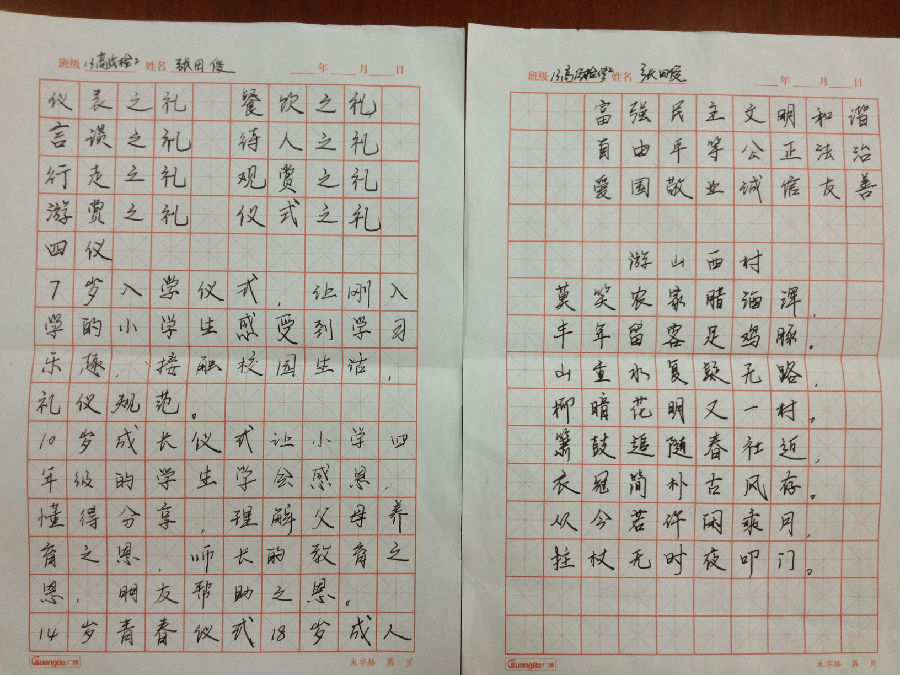 班级 13高 检2 姓名 张田俊 年 月 日
仪表之礼 餐饮之礼
言谈之礼 待人之礼
行走之礼 观赏之礼
游赏之礼 仪式之礼
四仪
7岁入学仪式，让刚入
学的小学生感受到学习
乐趣，接触校园生活，
礼仪规范。
10岁成长仪式让小学四
年级的学生学会感恩，
懂得分享，理解父母养
育之恩，师长的教育之
恩，朋友帮助之恩。
14岁青春仪式18岁成人
GuangBo广博 米字格 第 页
班级 13高 检 2 姓名 张田俊 年 月 日
富强民主文明和谐
自由平等公正法治
爱国敬业诚信友善
游山西村
莫笑农家腊酒浑，
丰年留客足鸡豚。
山重水复疑无路，
柳暗花明又一村。
箫鼓追随春社近，
衣冠简朴古风存。
从今若许闲乘月，
拄杖无时夜叩门。
GuangBo广博 米字格 第 页